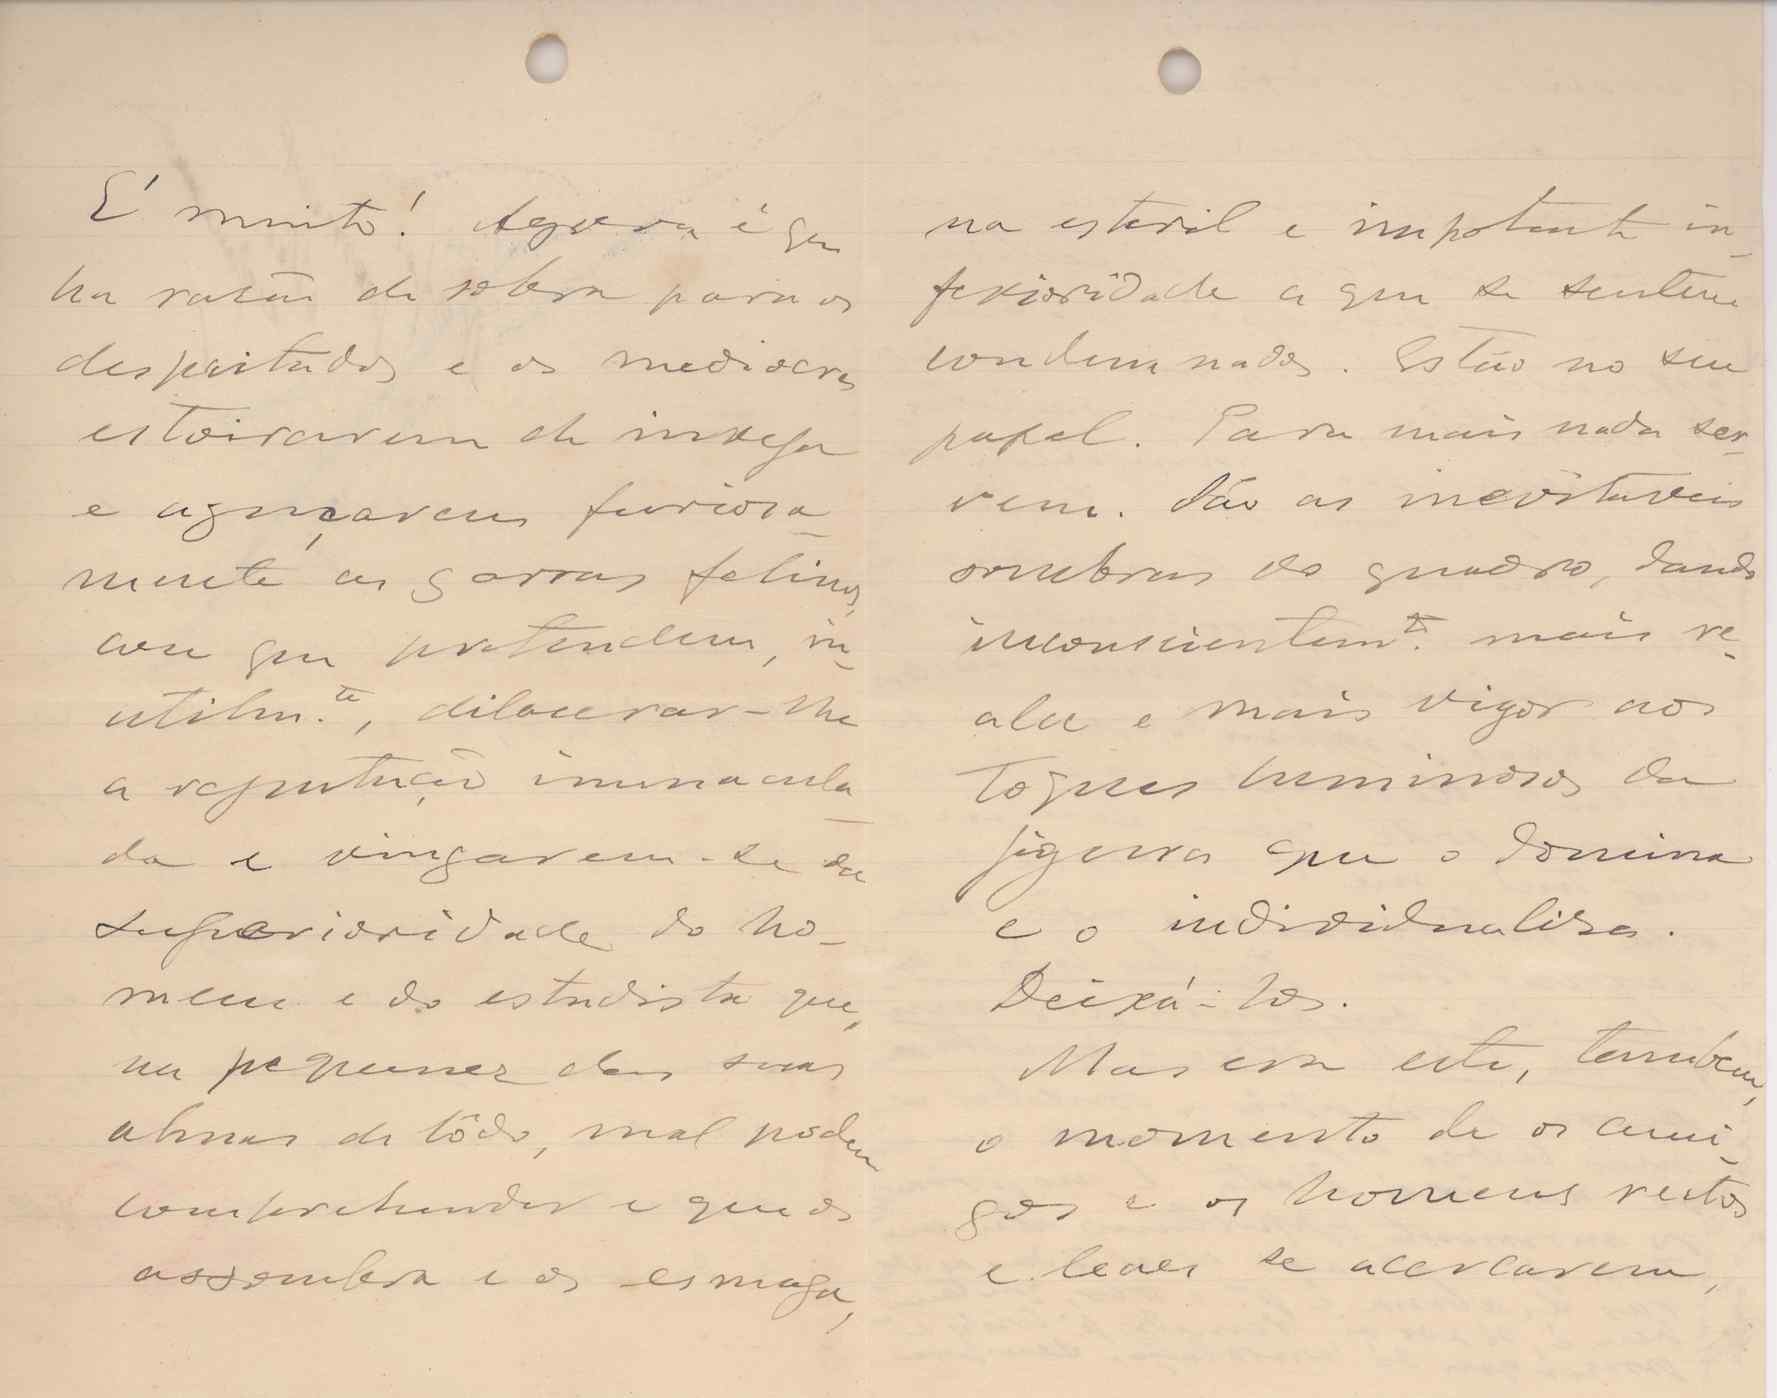 É muito! Agora é que
ha rasão de sobra para os
despeitados e os mediocres
estoirarem de inveja
e aguçarem furiosa-
mente as garras felinas,
com que pretendem, in-
utilm.te, dilacerar-lhe
a reputação immacula-
da e vingarem-se da
superioridade do ho-
mem e do estadista que,
na pequenez das suas
almas de lôdo, mal podem
comprehender e que os
assombra e os esmaga,
na esteril e impotente in-
ferioridade a que se sentem
condemnados. Estão no seu
papel. Para mais nada ser-
vem. São as inevitaveis
sombras do quadro, dando
inconscientem.te mais re-
alce e mais vigor aos
toques luminosos da
figura que o domina
e o individualisa.
Deixá-los.
Mas era este, tambem,
o momento de os ami-
gos e os homens rectos
e leaes se acercarem,